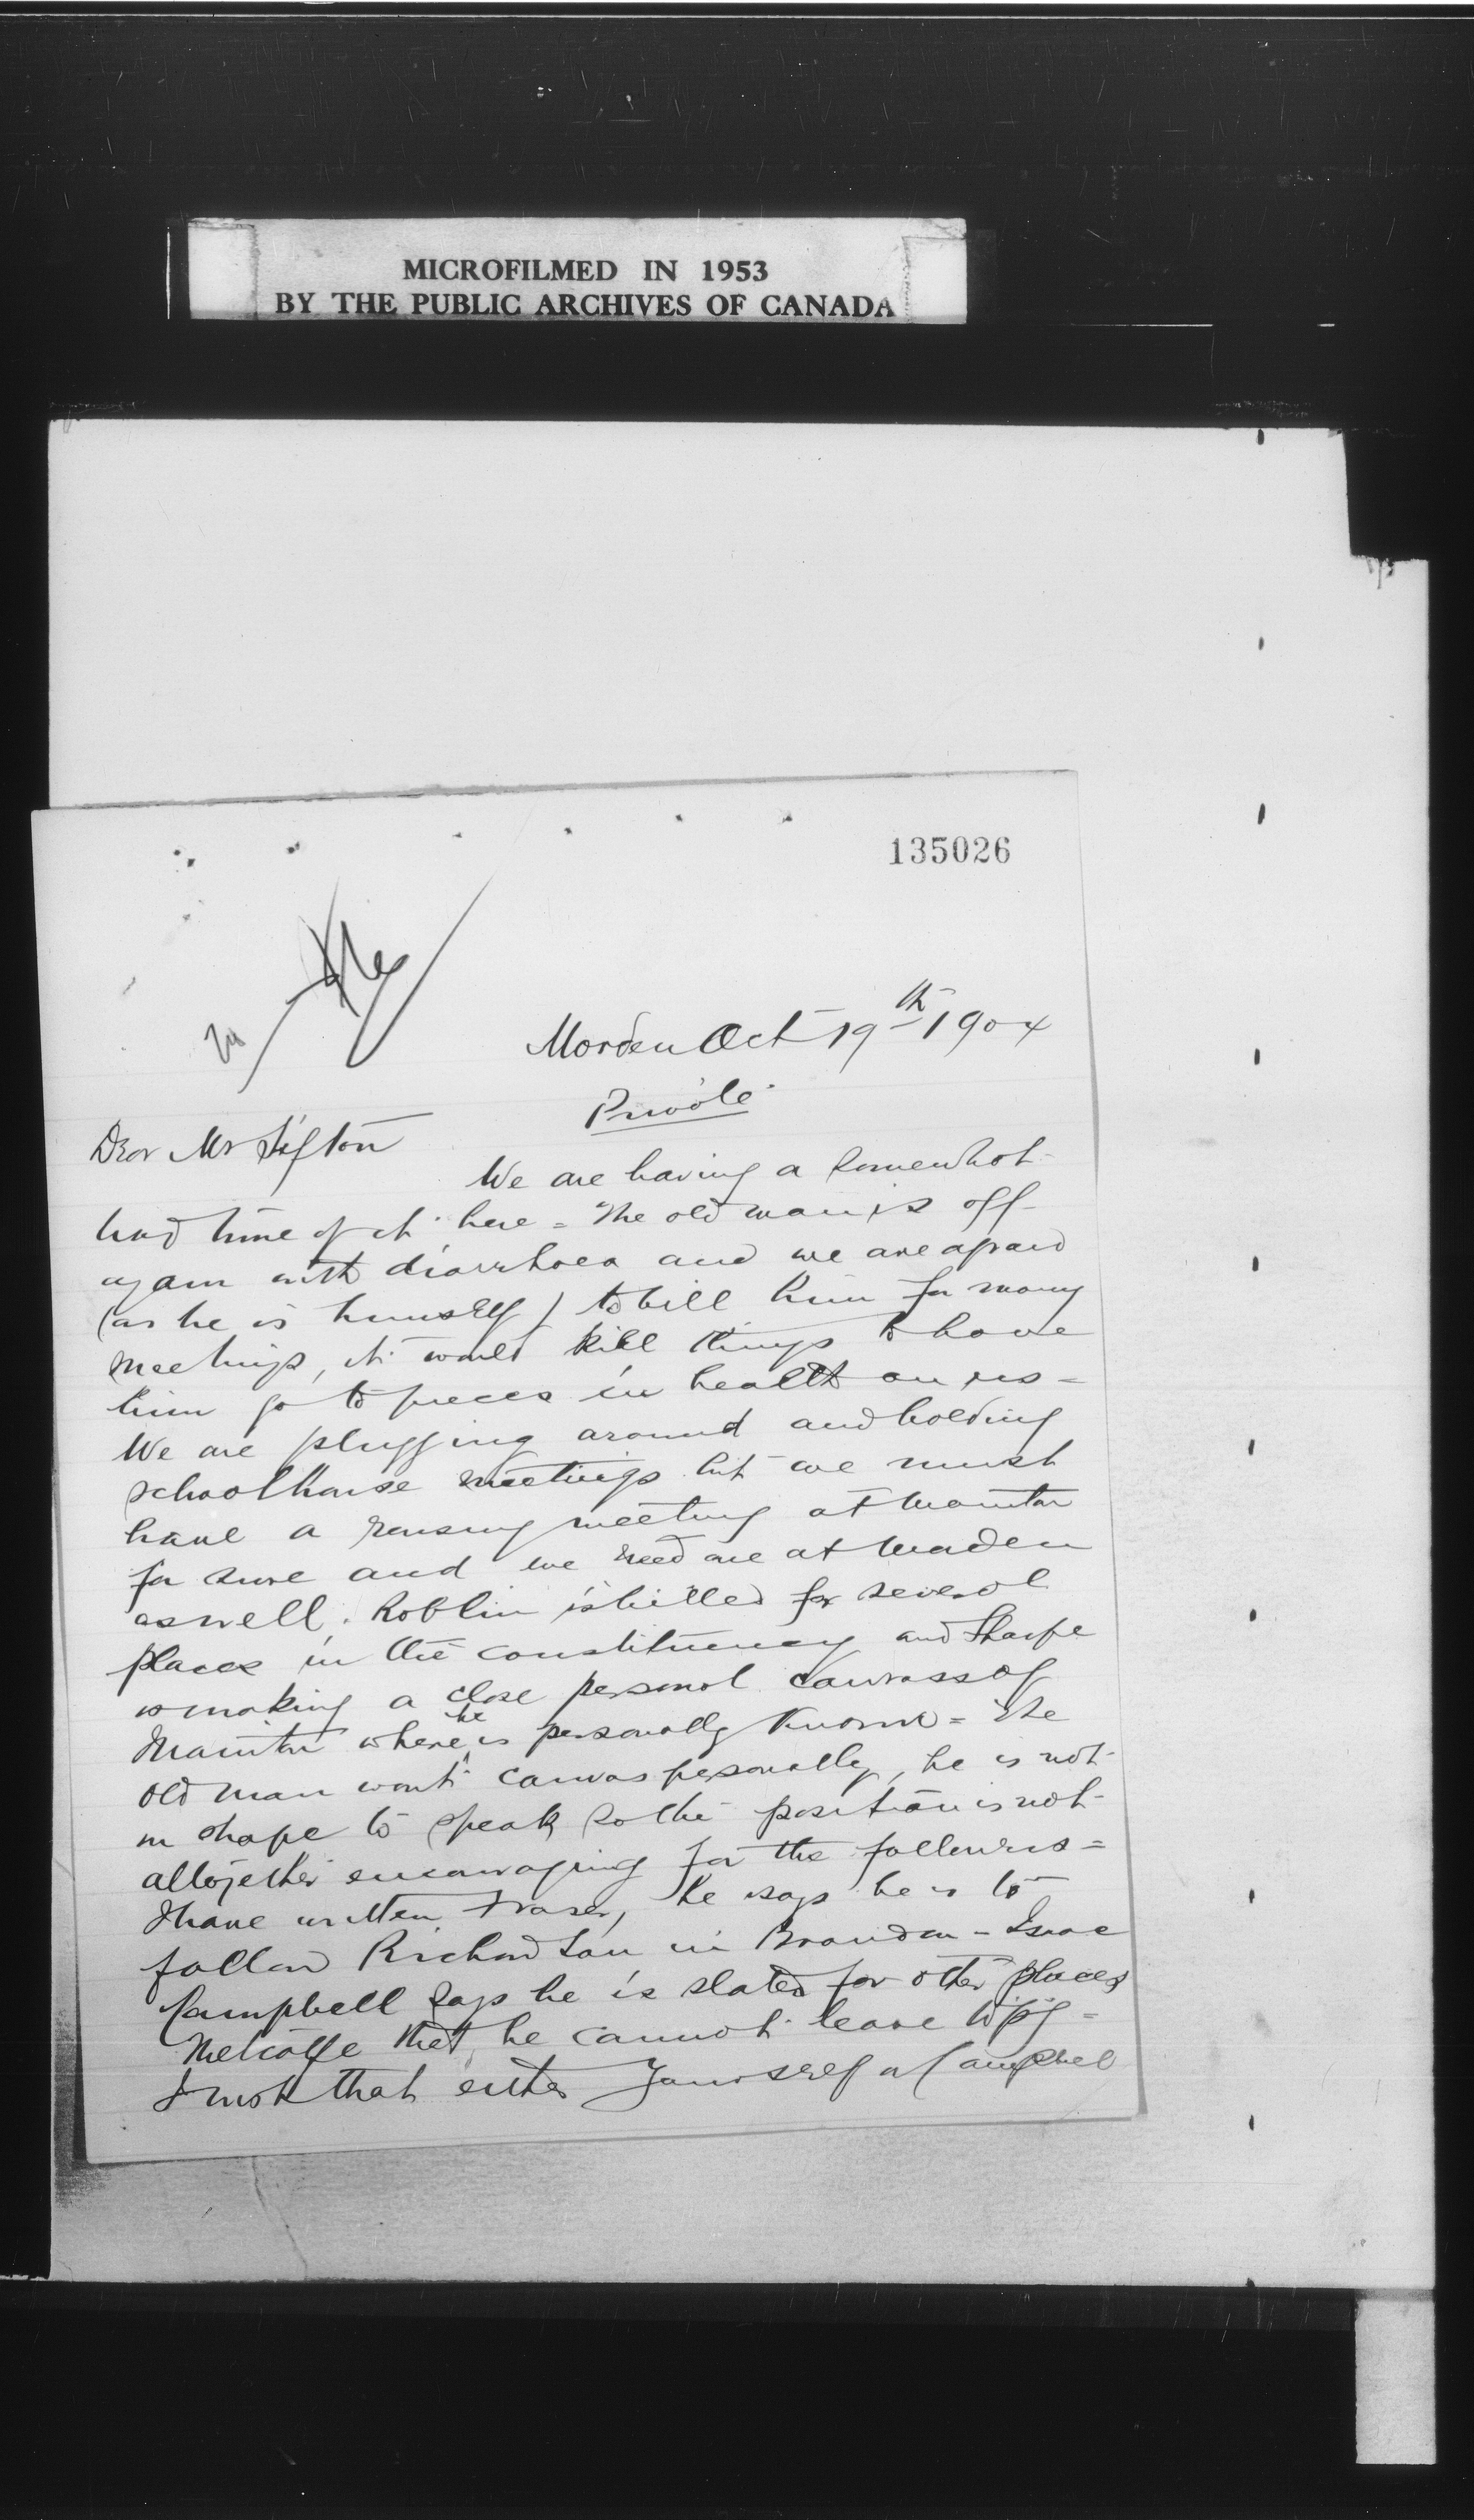 MICROFILMED IN 1953
BY THE PUBLIC ARCHIVES OF CANADA
135026
Morden Oct 19th 1904
Private
Dear Mr Sifton
We are having a somewhat
hard time of it here = The old man is off
again with diarrhoea and we are afraid
(as he is himself) to bill him for many
meetings, it would kill things to have
him go to pieces in health on us =
We are plugging around and holding
schoolhouse meetings but we must
have a rousing meeting at Manitou
for sure and we need one at Morden
as well. Roblin is billed for several
places in the constituency and Sharpe
is making a close personal canvass of
Manitou where he is personally known = The
old man wont canvas personally, he is not
in shape to speak so the position is not
altogether encouraging for the followers =
I have written Fraser, he says he is to
follow Richardson in Brandon - Isaac
Campbell says he is slated for other places
Metcalfe that he cannot leave Wpg =
I wish that either Yourself or Campbel